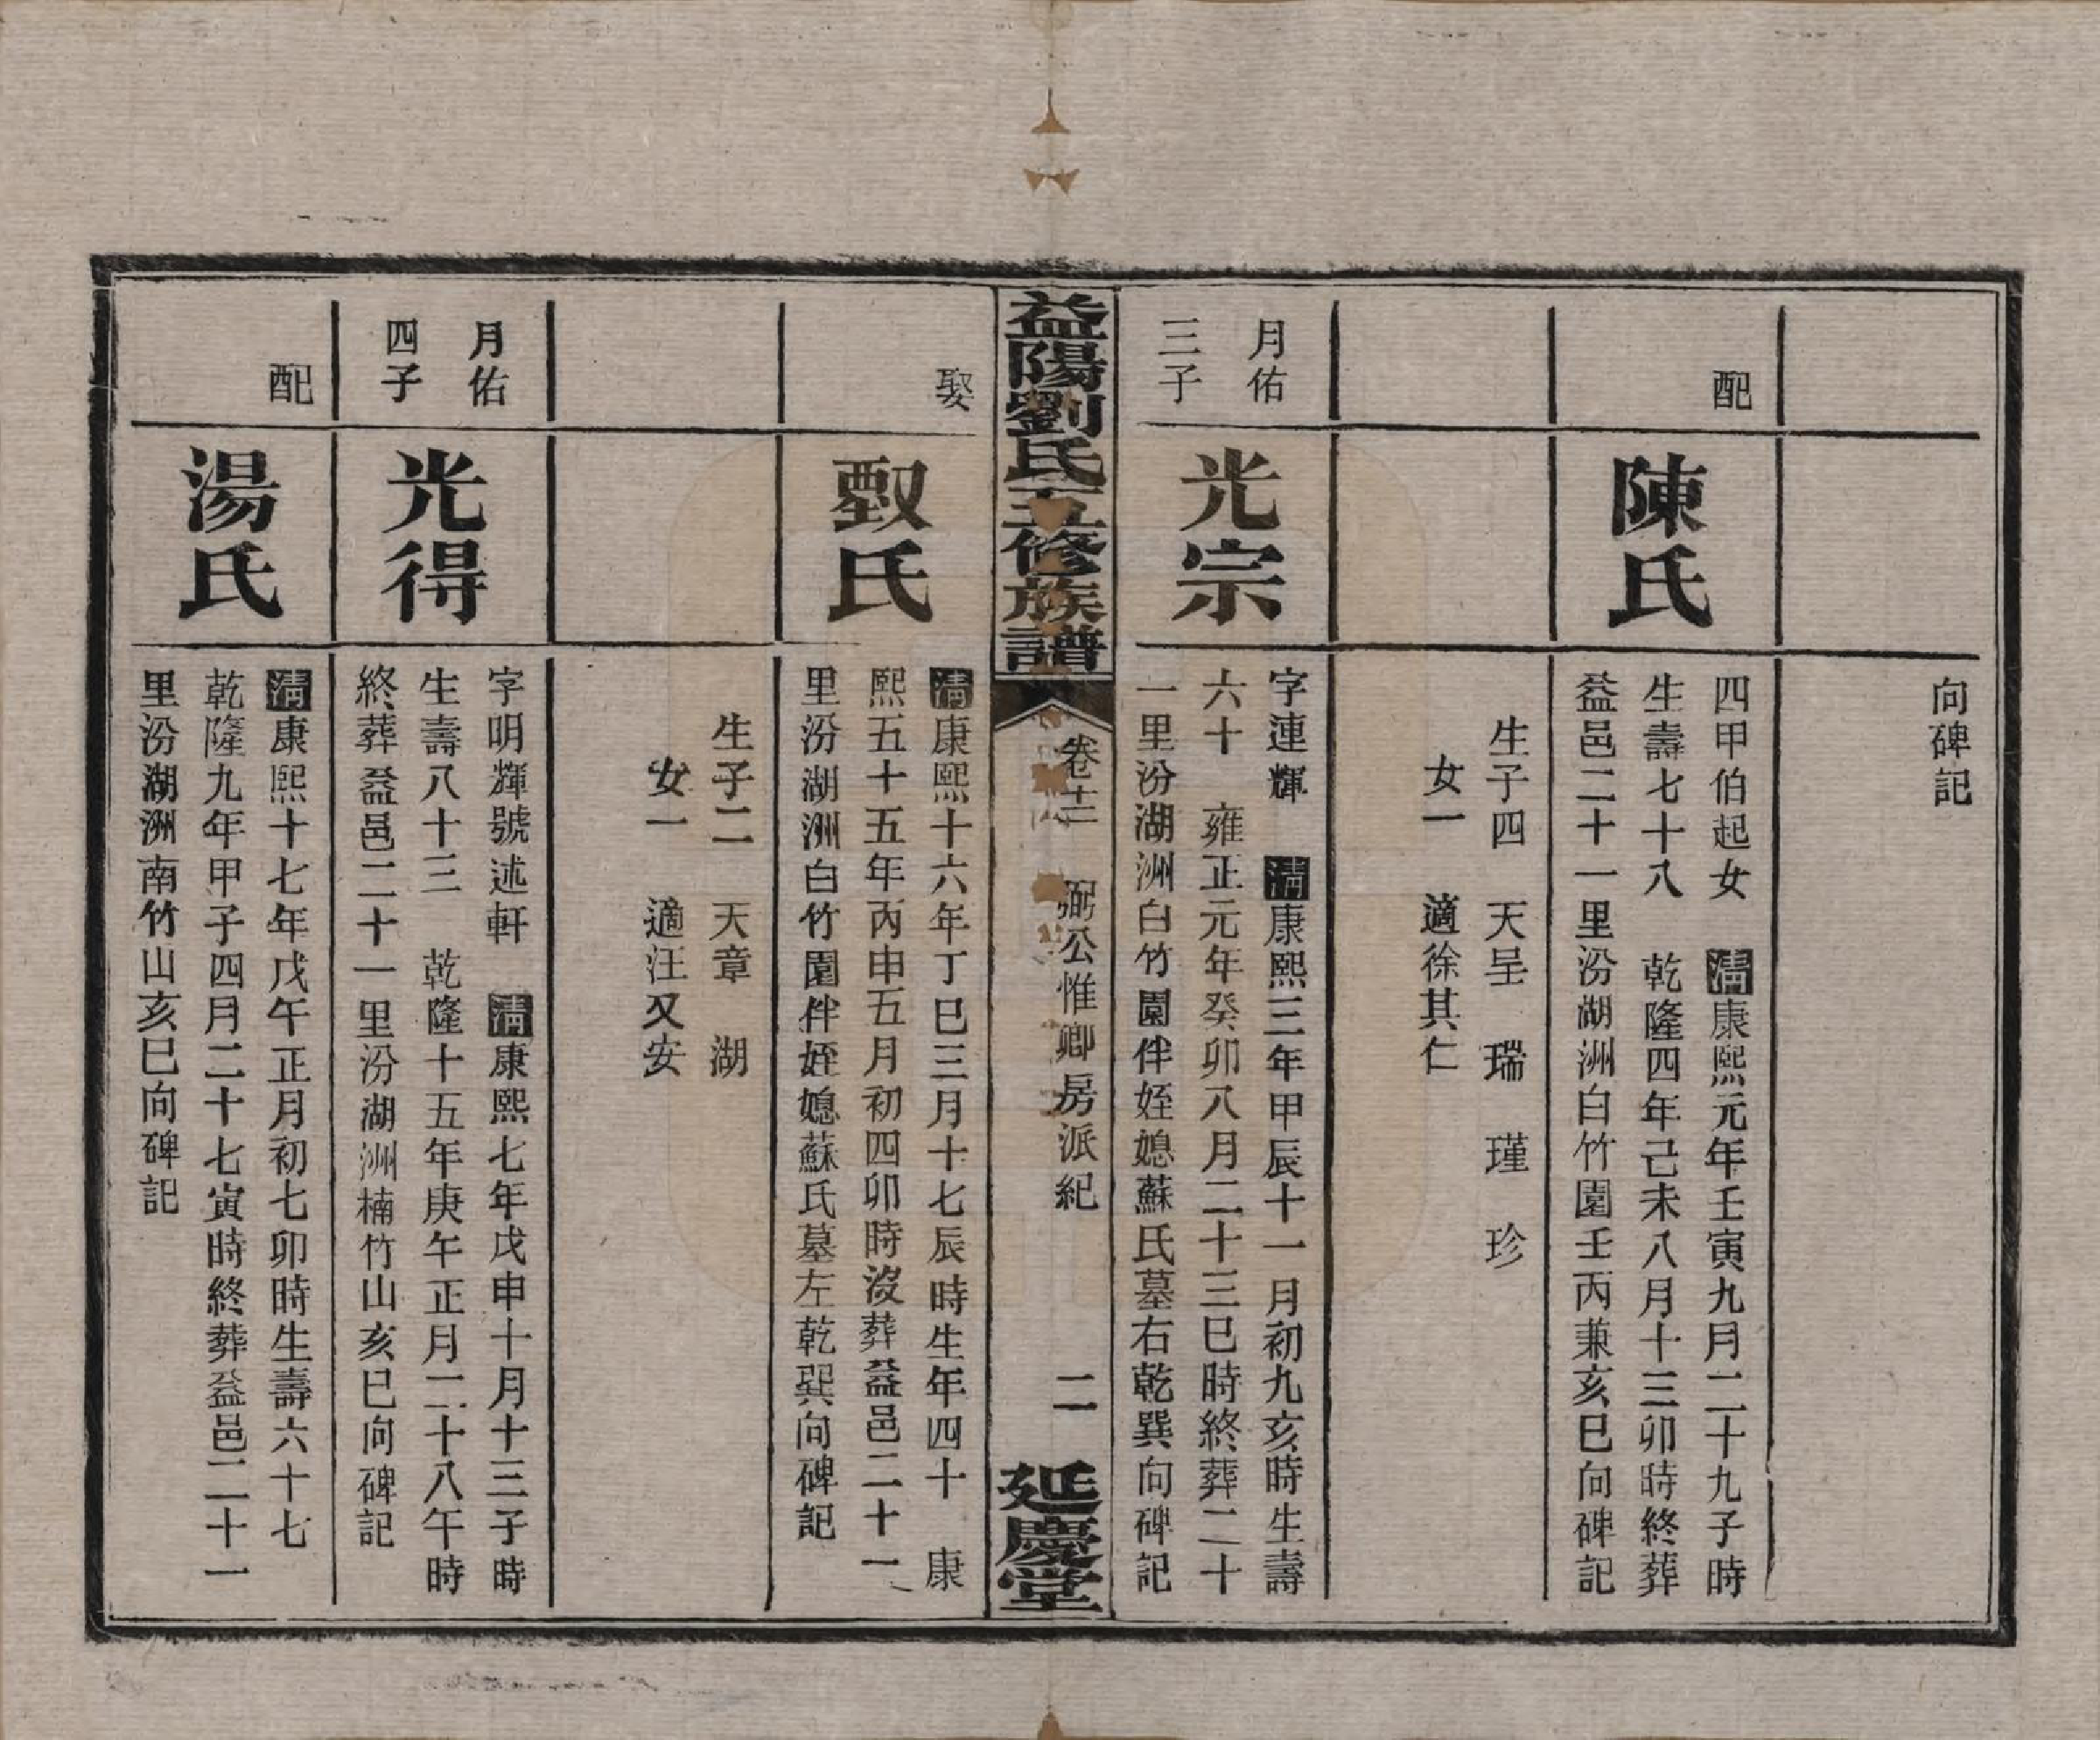 向碑記
配
陳氏
四甲伯起女　清康熙元年壬寅九月二十九子時
生壽七十八　乾隆四年己未八月十三卯時終葬
益邑二十一里汾湖洲白竹園壬丙兼亥巳向碑記
生子四　天呈　瑞　瑾　珍
女一　適徐其仁
月佑
三子
光宗
字連輝　清康熙三年甲辰十一月初九亥時生壽
六十　雍正元年癸卯八月二十三巳時終葬二十
一里汾湖洲白竹園伴姪媳蘇氏墓右乾巽向碑記
益陽劉氏五修族譜
卷十二　弼公惟卿房派紀
二
延慶堂
娶
氏
清康熙十六年丁巳三月十七辰時生年四十　康
熙五十五年丙申五月初四卯時沒葬益邑二十一
里汾湖洲白竹園伴姪媳蘇氏墓左乾巽向碑記
生子二　天章　湖
女一　適汪又安
月佑
四子
光得
字明輝號述軒　清康熙七年戊申十月十三子時
生壽八十三　乾隆十五年庚午正月二十八午時
終葬益邑二十一里汾湖洲楠竹山亥巳向碑記
配
湯氏
清康熙十七年戊午正月初七卯時生壽六十七
乾隆九年甲子四月二十七寅時終葬益邑二十一
里汾湖洲南竹山亥巳向碑記